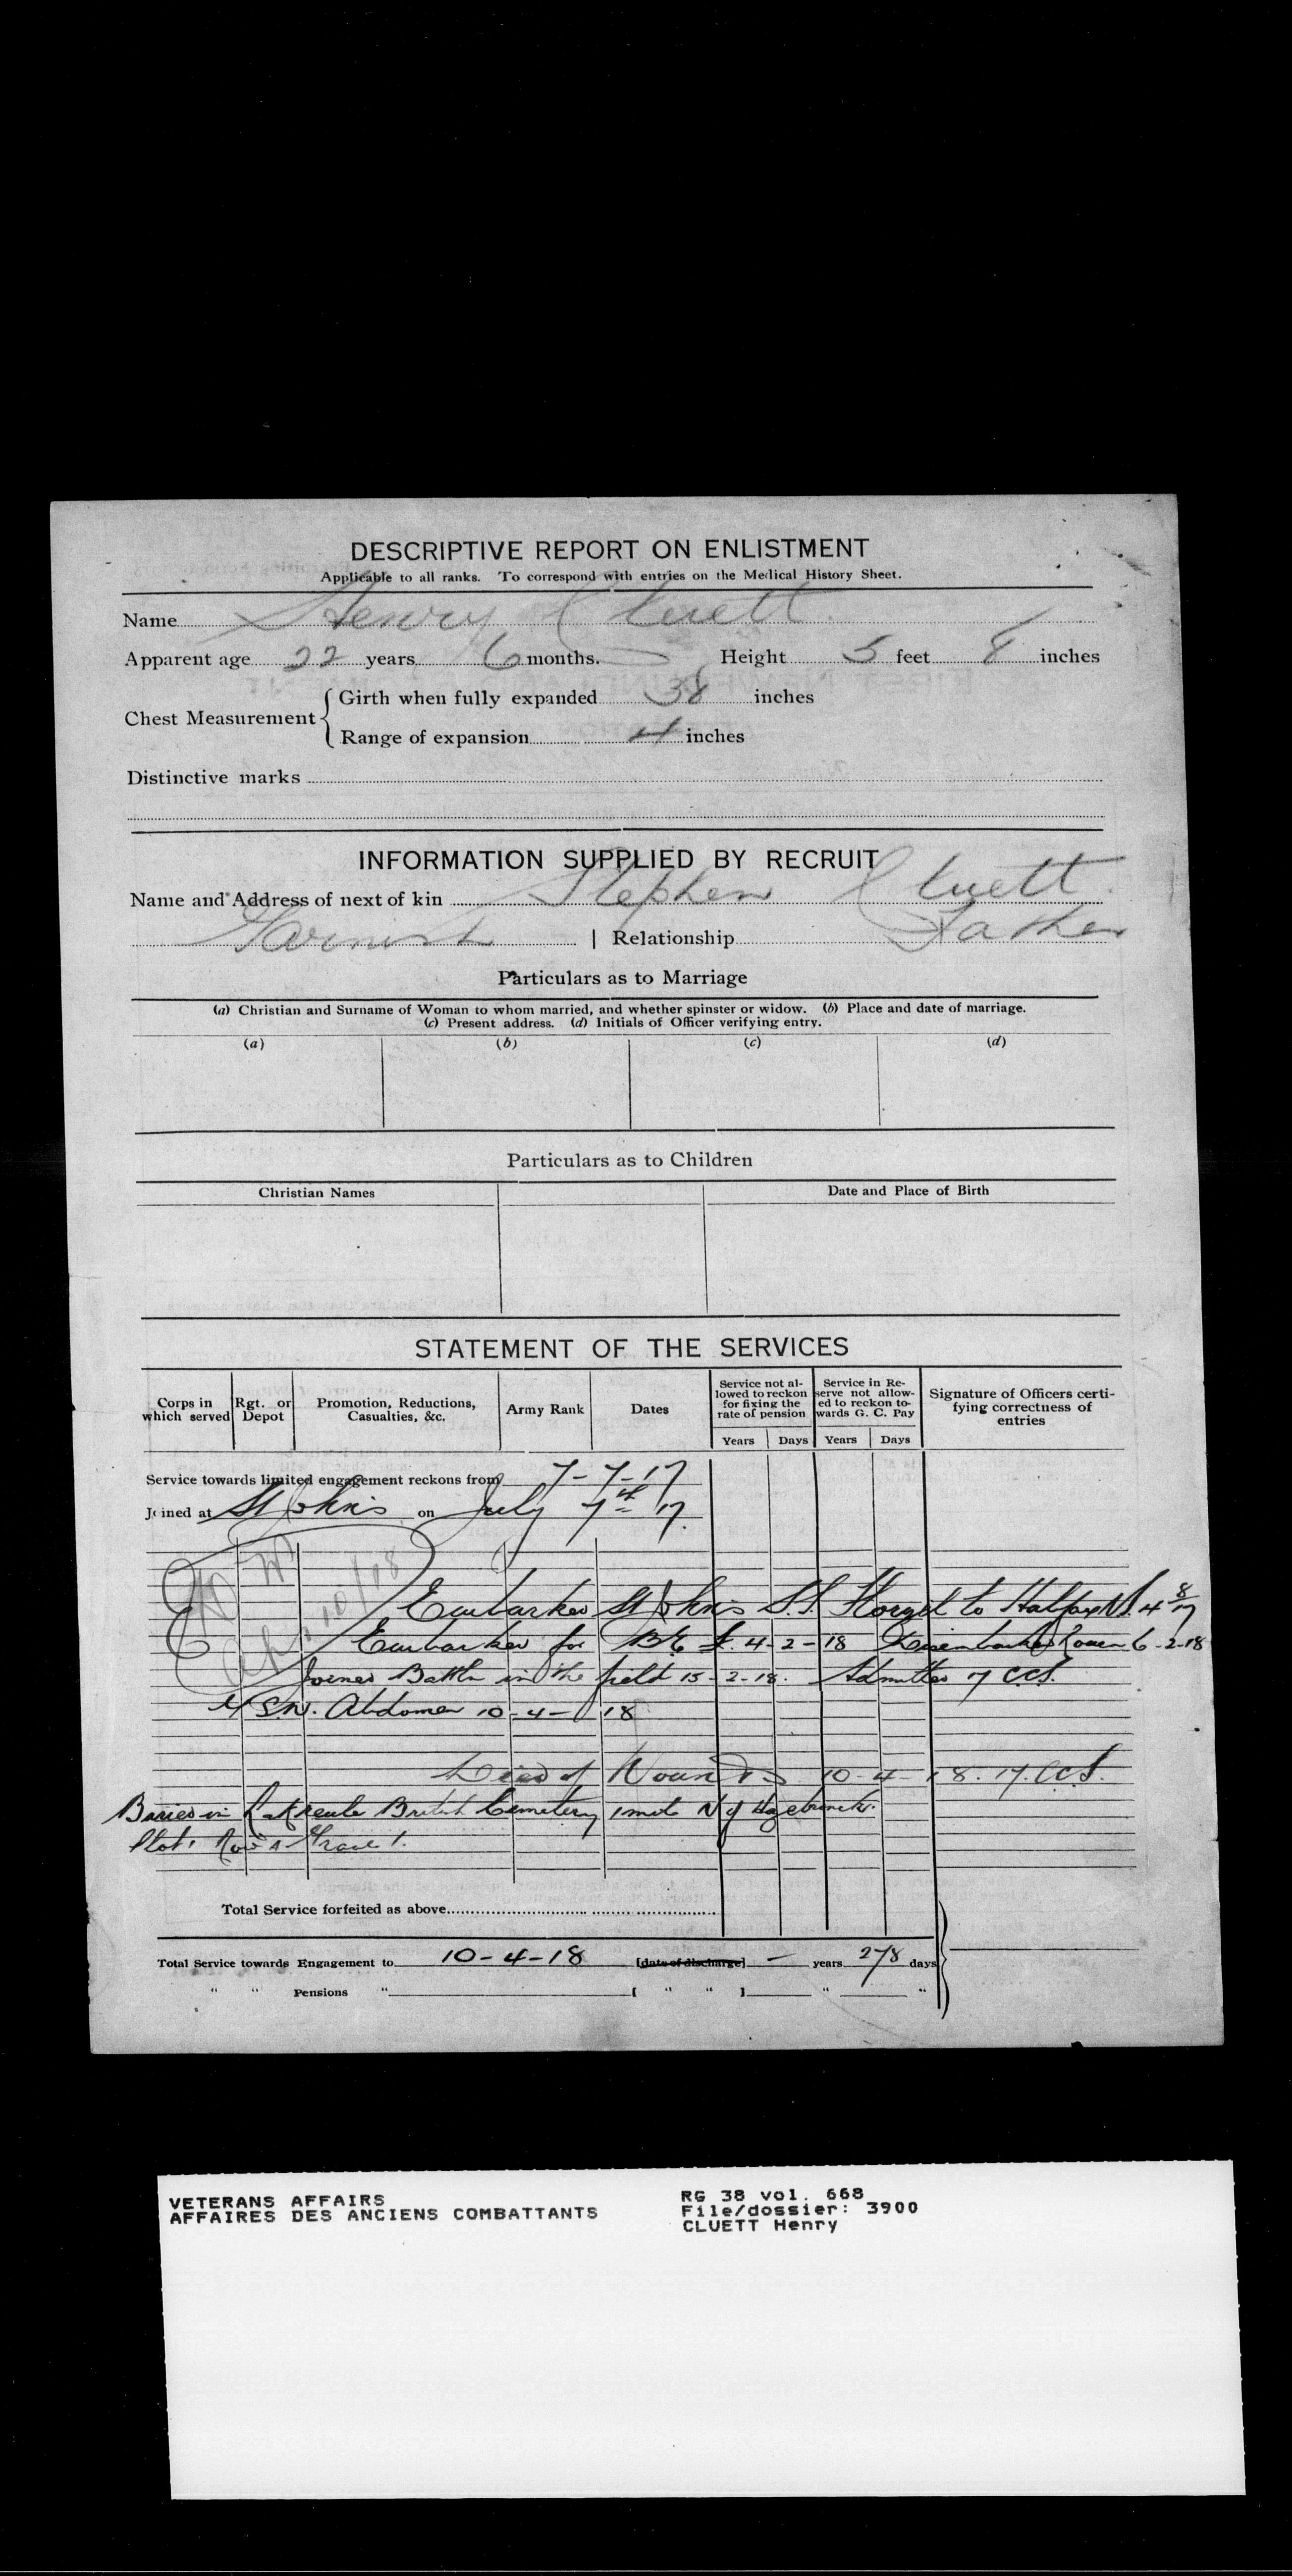 DESCRIPTIVE REPORT ON ENLISTMENT
Applicable to all ranks. To correspond with entries on the Medical History Sheet.
Name Henry Cluett
Apparent age 22 years 6 months. Height 5 feet 8 inches
Chest Measurement { Girth when fully expanded 38 inches
Range of expansion 4 inches
Distinctive marks
INFORMATION SUPPLIED BY RECRUIT
Name and Address of next of kin Stephen Cluett
Garnish | Relationship Father
Particulars as to Marriage
(a) Christian and Surname of Woman to whom married, and whether spinster or widow. (b) Place and date of marriage.
(c) Present address. (d) Initials of Officer verifying entry.
(a) (b) (c) (d)
Particulars as to Children
Christian Names Date and Place of Birth
STATEMENT OF THE SERVICES
Corps in which served Rgt. or Depot Promotion, Reductions, Casualties, &c. Army Rank Dates Service not allowed to reckon for fixing the rate of pension Service in Reserve not allowed to reckon towards G. C. Pay Signature of Officers certifying correctness of entries
Years Days Years Days
Service towards limited engagement reckons from 7-7-17
Joined at St John's on July 7th 17.
Embarked St John's S.S. Florizel to Halifax N.S. 4 8/17
Embarked for B.E.F. 4-2-18 Disembarked Rouen 6-2-18
Joined Battln in the field 15-2-18. Admitted 17 CCS.
S.W. Abdomen 10-4-18
Died of Wounds 10-4-18. 17. CCS.
Buried in British Cemetery 1 mile N of Hazebrouck.
Plot 1 Row A Grave 1.
Total Service forfeited as above
Total Service towards Engagement to 10-4-18 [date of discharge] — years 278 days
" " Pensions " [ " " ] " "
VETERANS AFFAIRS
AFFAIRES DES ANCIENS COMBATTANTS
RG 38 vol. 668
File/dossier: 3900
CLUETT Henry